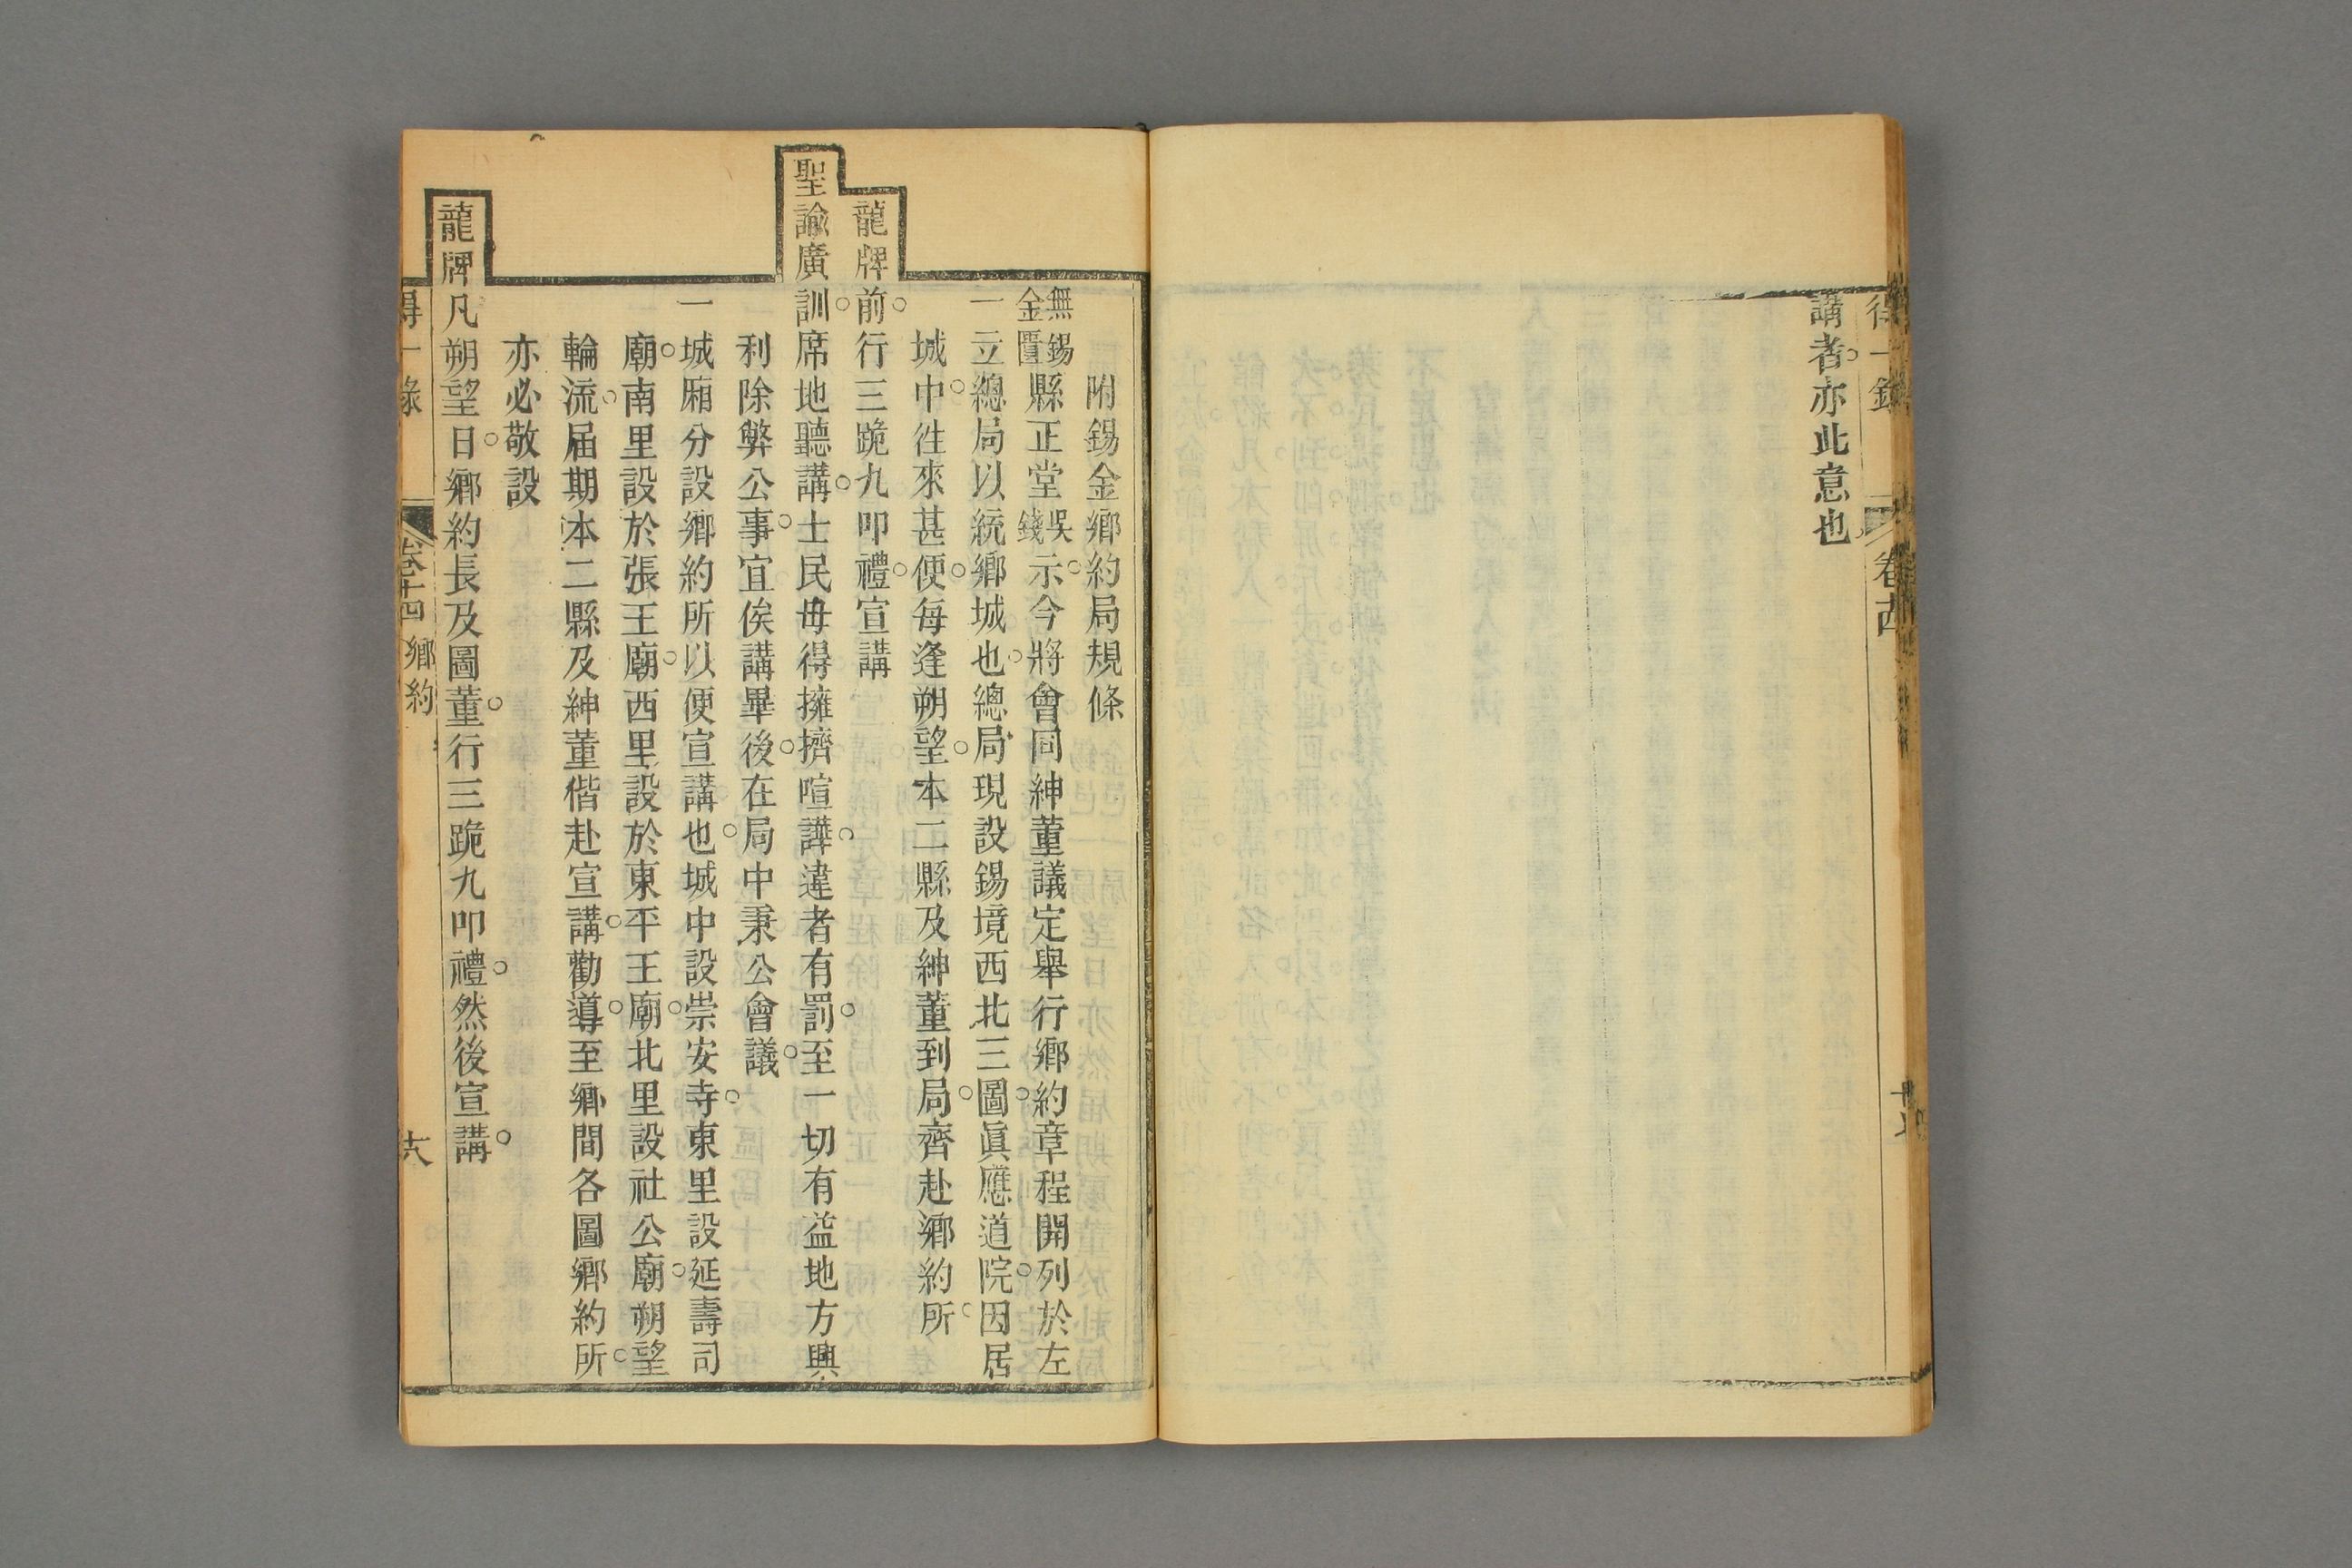 得一錄
卷十四
講者亦此意也
附錫金鄉約局規條
無錫金匱縣正堂吳錢示今將會同紳董議定舉行鄉約章程開列於左
一立總局以統鄉城也總局現設錫境西北三圖眞應道院因居
城中往來甚便每逢朔望本二縣及紳董到局齊赴鄉約所
龍牌前行三跪九叩禮宣講
聖諭廣訓席地聽講士民毋得擁擠喧譁違者有罰至一切有益地方興
利除弊公事宜俟講畢後在局中秉公會議
一城廂分設鄉約所以便宣講也城中設崇安寺東里設延壽司
廟南里設於張王廟西里設於東平王廟北里設社公廟朔望
輪流届期本二縣及紳董偕赴宣講勸導至鄉間各圖鄉約所
亦必敬設
龍牌凡朔望日鄉約長及圖董行三跪九叩禮然後宣講
得一錄
卷十四
鄉約
六